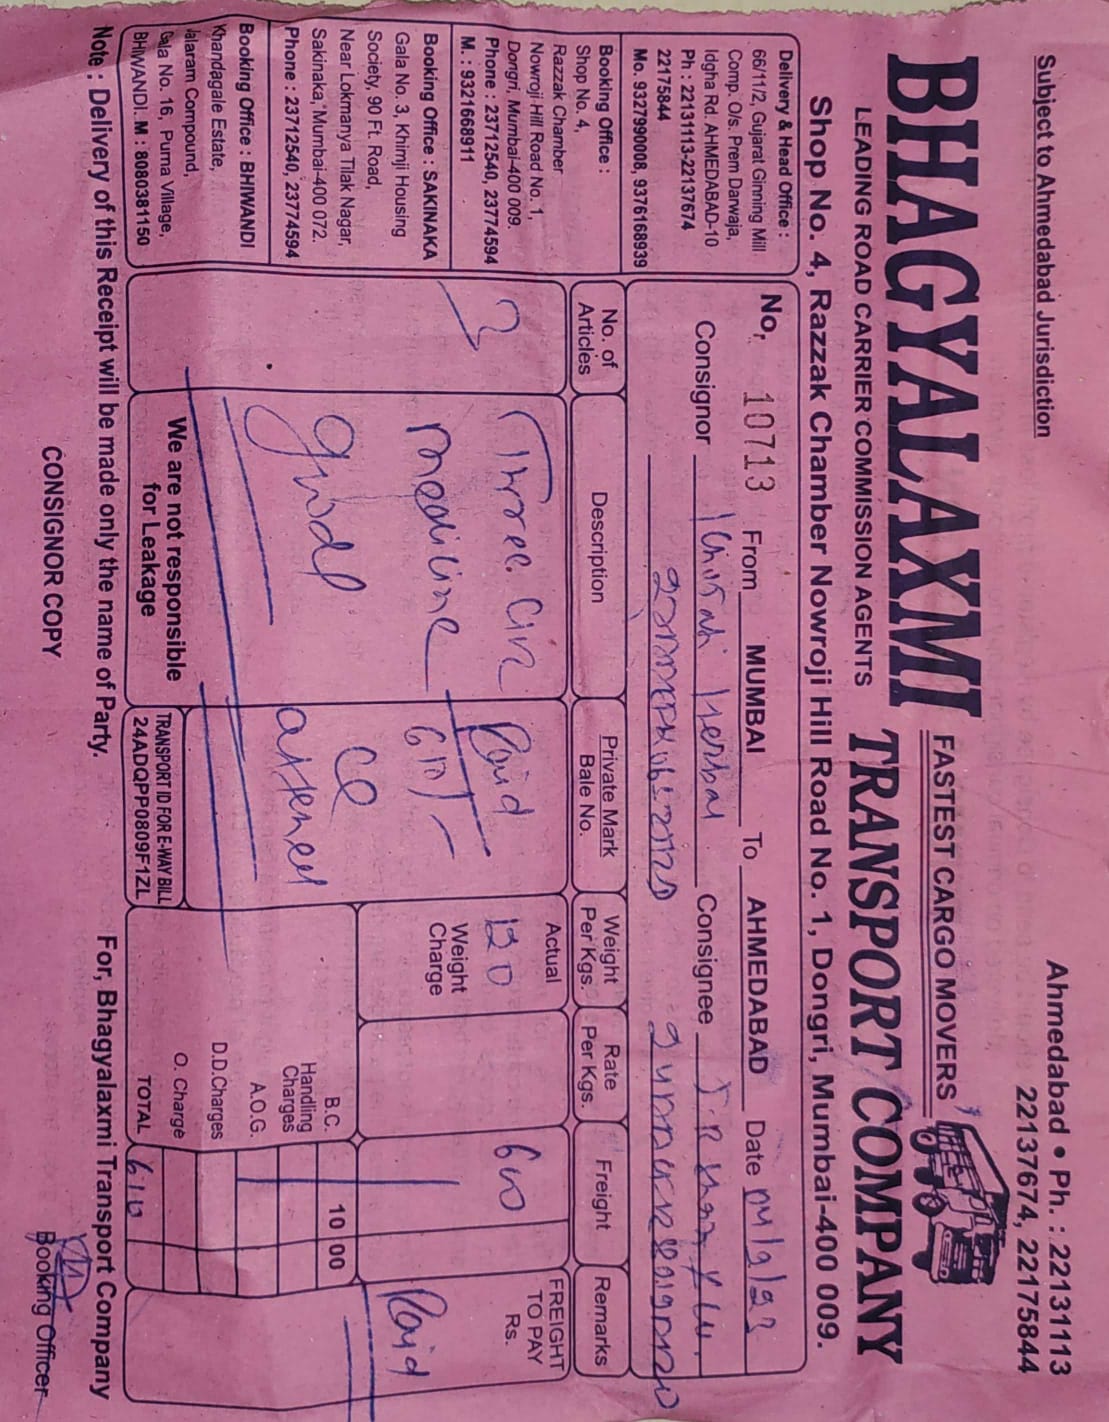 Subject to Ahmedabad Jurisdiction
Ahmedabad • Ph. : 22131113
22137674, 22175844
FASTEST CARGO MOVERS
BHAGYALAXMI TRANSPORT COMPANY
LEADING ROAD CARRIER COMMISSION AGENTS
Shop No. 4, Razzak Chamber Nowroji Hill Road No. 1, Dongri, Mumbai-400 009.
Delivery & Head Office :
66/11/2, Gujarat Ginning Mill
Comp. O/s. Prem Darwaja,
Idgha Rd. AHMEDABAD-10
Ph : 22131113-22137674
22175844
Mo. 9327990008, 9376168939
Booking Office :
Shop No. 4,
Razzak Chamber
Nowroji Hill Road No. 1,
Dongri, Mumbai-400 009.
Phone : 23712540, 23774594
M. : 9321668911
Booking Office : SAKINAKA
Gala No. 3, Khimji Housing
Society, 90 Ft. Road,
Near Lokmanya Tilak Nagar,
Sakinaka, Mumbai-400 072.
Phone : 23712540, 23774594
Booking Office : BHIWANDI
Khandagale Estate,
Jalaram Compound,
Gala No. 16, Purna Village,
BHIWANDI. M : 8080381150
No. 10713 From MUMBAI To AHMEDABAD Date
Consignor Consignee
No. of Articles Description Private Mark Bale No. Weight Per Kgs. Rate Per Kgs. Freight Remarks
3 Three Paid Actual 130 600 FREIGHT TO PAY Rs. Paid
medicine 610/- Weight Charge
B.C. 10 00
Handling Charges
A.O.G.
D.D.Charges
O. Charge
TOTAL 610
We are not responsible
for Leakage
TRANSPORT ID FOR E-WAY BILL
24ADQPP0809F1ZL
Note : Delivery of this Receipt will be made only the name of Party.
For, Bhagyalaxmi Transport Company
CONSIGNOR COPY
Booking Officer